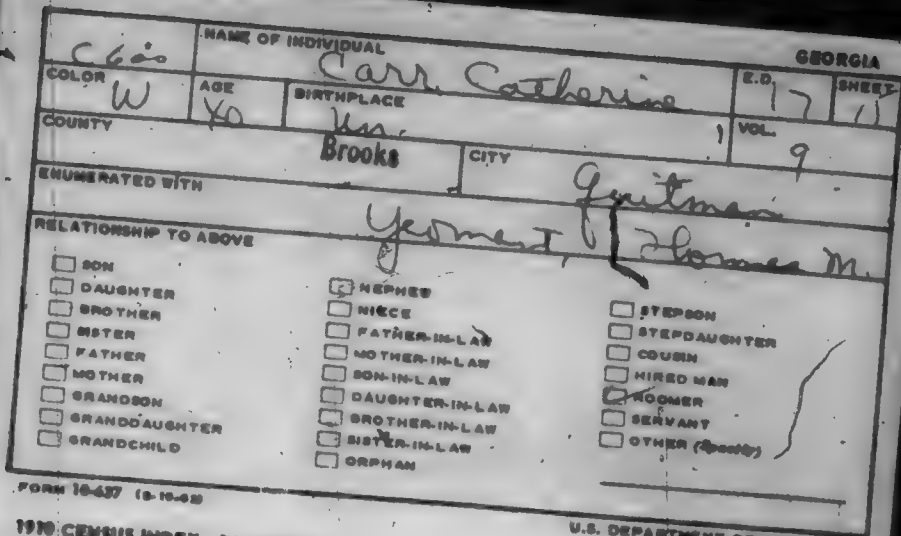 NAME OF INDIVIDUAL GEORGIA
C 600 Carr, Catherine E.D. 17 SHEET 11
COLOR W AGE BIRTHPLACE VOL. 9
COUNTY Brooks CITY Quitman
ENUMERATED WITH Thomas M.
RELATIONSHIP TO ABOVE
SON
DAUGHTER
BROTHER
SISTER
FATHER
MOTHER
GRANDSON
GRANDDAUGHTER
GRANDCHILD
NEPHEW
NIECE
FATHER-IN-LAW
MOTHER-IN-LAW
SON-IN-LAW
DAUGHTER-IN-LAW
BROTHER-IN-LAW
SISTER-IN-LAW
ORPHAN
STEPSON
STEPDAUGHTER
COUSIN
HIRED MAN
ROOMER
SERVANT
OTHER (Specify)
FORM 10-637
1910 CENSUS INDEX U.S. DEPARTMENT OF